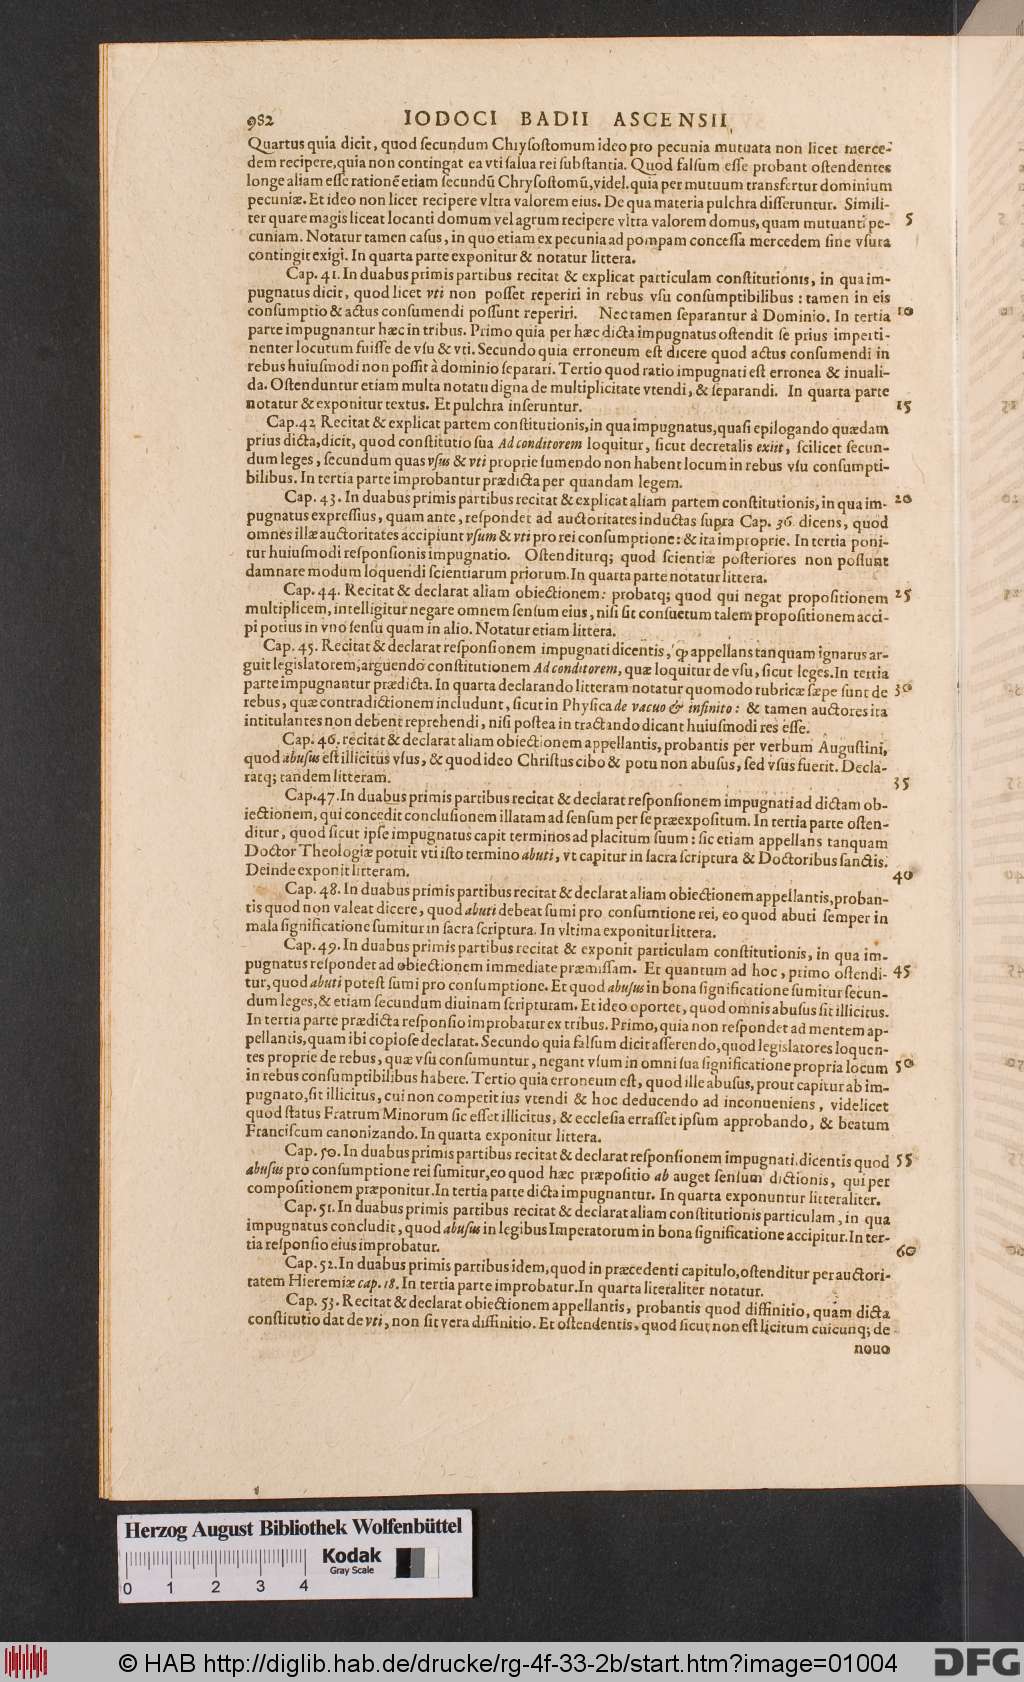 982 IODOCI BADII ASCENSII,
Quartus quia dicit, quod ſecundum Chryſoſtomum ideo pro pecunia mutuata non licet merce-
dem recipere,quia non contingat ea vti ſalua rei ſubſtantia. Quod falſum eſſe probant oſtendentes
longe aliam eſſe rationē etiam ſecundū Chryſoſtomū,videl.quia per mutuum transfertur dominium
pecuniæ. Et ideo non licet recipere vltra valorem eius. De qua materia pulchra diſſeruntur. Simili-
ter quare magis liceat locanti domum vel agrum recipere vltra valorem domus, quam mutuanti pe- 5
cuniam. Notatur tamen caſus, in quo etiam ex pecunia ad pompam conceſſa mercedem ſine vſura
contingit exigi. In quarta parte exponitur & notatur littera.
Cap. 41. In duabus primis partibus recitat & explicat particulam conſtitutionis, in qua im-
pugnatus dicit, quod licet vti non poſſet reperiri in rebus vſu conſumptibilibus : tamen in eis
conſumptio & actus conſumendi poſſunt reperiri. Nec tamen ſeparantur à Dominio. In tertia 10
parte impugnantur hæc in tribus. Primo quia per hæc dicta impugnatus oſtendit ſe prius imperti-
nenter locutum fuiſſe de vſu & vti. Secundo quia erroneum eſt dicere quod actus conſumendi in
rebus huiuſmodi non poſſit à dominio ſeparari. Tertio quod ratio impugnati eſt erronea & inuali-
da. Oſtenduntur etiam multa notatu digna de multiplicitate vtendi, & ſeparandi. In quarta parte
notatur & exponitur textus. Et pulchra inferuntur. 15
Cap.42 Recitat & explicat partem conſtitutionis,in qua impugnatus,quaſi epilogando quædam
prius dicta,dicit, quod conſtitutio ſua Ad conditorem loquitur, ſicut decretalis exiit, ſcilicet ſecun-
dum leges, ſecundum quas vſus & vti proprie ſumendo non habent locum in rebus vſu conſumpti-
bilibus. In tertia parte improbantur prædicta per quandam legem.
Cap. 43. In duabus primis partibus recitat & explicat aliam partem conſtitutionis, in qua im- 20
pugnatus expreſſius, quam ante, reſpondet ad auctoritates inductas ſupra Cap. 36. dicens, quod
omnes illæ auctoritates accipiunt vſum & vti pro rei conſumptione: & ita improprie. In tertia poni-
tur huiuſmodi reſponſionis impugnatio. Oſtenditurq; quod ſcientiæ poſteriores non poſſunt
damnare modum loquendi ſcientiarum priorum. In quarta parte notatur littera.
Cap. 44. Recitat & declarat aliam obiectionem: probatq; quod qui negat propoſitionem 25
multiplicem, intelligitur negare omnem ſenſum eius, niſi ſit conſuetum talem propoſitionem acci-
pi potius in vno ſenſu quam in alio. Notatur etiam littera.
Cap. 45. Recitat & declarat reſponſionem impugnati dicentis, ꝙ appellans tanquam ignarus ar-
guit legislatorem,arguendo conſtitutionem Ad conditorem, quæ loquitur de vſu, ſicut leges.In tertia
parte impugnantur prædicta. In quarta declarando litteram notatur quomodo rubricæ ſæpe ſunt de 30
rebus, quæ contradictionem includunt, ſicut in Phyſica de vacuo & infinito: & tamen auctores ita
intitulantes non debent reprehendi, niſi poſtea in tractando dicant huiuſmodi res eſſe.
Cap. 46. recitat & declarat aliam obiectionem appellantis, probantis per verbum Auguſtini,
quod abuſus eſt illicitus vſus, & quod ideo Chriſtus cibo & potu non abuſus, ſed vſus fuerit. Decla-
ratq; tandem litteram. 35
Cap.47.In duabus primis partibus recitat & declarat reſponſionem impugnati ad dictam ob-
iectionem, qui concedit concluſionem illatam ad ſenſum per ſe præexpoſitum. In tertia parte oſten-
ditur, quod ſicut ipſe impugnatus capit terminos ad placitum ſuum: ſic etiam appellans tanquam
Doctor Theologiæ potuit vti iſto termino abuti, vt capitur in ſacra ſcriptura & Doctoribus ſanctis.
Deinde exponit litteram. 40
Cap. 48. In duabus primis partibus recitat & declarat aliam obiectionem appellantis,proban-
tis quod non valeat dicere, quod abuti debeat ſumi pro conſumtione rei, eo quod abuti ſemper in
mala ſignificatione ſumitur in ſacra ſcriptura. In vltima exponitur littera.
Cap. 49. In duabus primis partibus recitat & exponit particulam conſtitutionis, in qua im-
pugnatus reſpondet ad obiectionem immediate præmiſſam. Et quantum ad hoc, primo oſtendi- 45
tur, quod abuti poteſt ſumi pro conſumptione. Et quod abuſus in bona ſignificatione ſumitur ſecun-
dum leges,& etiam ſecundum diuinam ſcripturam. Et ideo oportet, quod omnis abuſus ſit illicitus.
In tertia parte prædicta reſponſio improbatur ex tribus. Primo, quia non reſpondet ad mentem ap-
pellantis,quam ibi copioſe declarat. Secundo quia falſum dicit aſſerendo,quod legislatores loquen-
tes proprie de rebus, quæ vſu conſumuntur, negant vſum in omni ſua ſignificatione propria locum 50
in rebus conſumptibilibus habere. Tertio quia erroneum eſt, quod ille abuſus, prout capitur ab im-
pugnato,ſit illicitus, cui non competit ius vtendi & hoc deducendo ad inconueniens, videlicet
quod ſtatus Fratrum Minorum ſic eſſet illicitus, & eccleſia erraſſet ipſum approbando, & beatum
Franciſcum canonizando. In quarta exponitur littera.
Cap. 50. In duabus primis partibus recitat & declarat reſponſionem impugnati,dicentis quod 55
abuſus pro conſumptione rei ſumitur,eo quod hæc præpoſitio ab auget ſenſum dictionis, qui per
compoſitionem præponitur.In tertia parte dicta impugnantur. In quarta exponuntur litteraliter.
Cap. 51. In duabus primis partibus recitat & declarat aliam conſtitutionis particulam, in qua
impugnatus concludit, quod abuſus in legibus Imperatorum in bona ſignificatione accipitur.In ter-
tia reſponſio eius improbatur. 60
Cap. 52.In duabus primis partibus idem,quod in præcedenti capitulo,oſtenditur per auctori-
tatem Hieremiæ cap. 18. In tertia parte improbatur.In quarta literaliter notatur.
Cap. 53. Recitat & declarat obiectionem appellantis, probantis quod diffinitio, quam dicta
conſtitutio dat de vti, non ſit vera diffinitio. Et oſtendentis, quod ſicut non eſt licitum cuicunq; de
nouo
Herzog August Bibliothek Wolfenbüttel
Kodak
Gray Scale
0 1 2 3 4
© HAB http://diglib.hab.de/drucke/rg-4f-33-2b/start.htm?image=01004
DFG